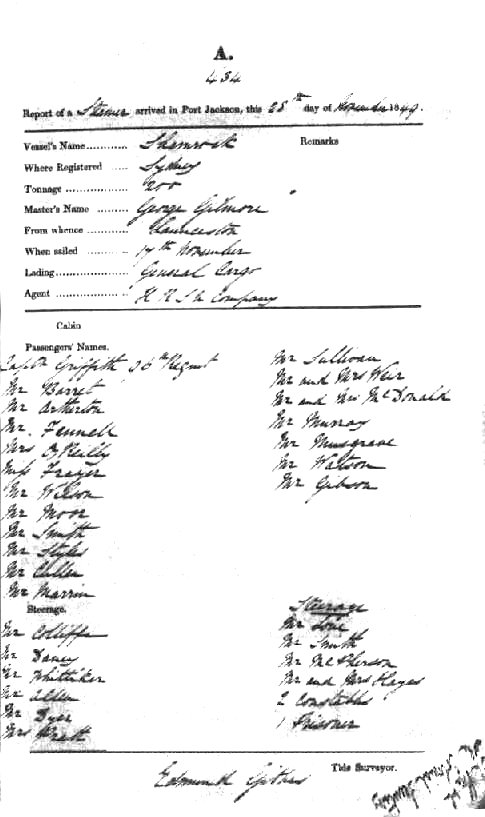 A.
434
Report of a Steamer arrived in Port Jackson, this 28th day of November 1849.
Vessel's Name............ Shamrock
Remarks
Where Registered ..... Sydney
Tonnage .................. 200
Master's Name ......... George Gilmore
From whence ............ Launceston
When sailed ............. 17th November
Lading..................... General Cargo
Agent ..................... H R S N Company
Cabin
Passengers' Names.
Captn Griffith 36th Regmt
Mr Barret
Mr Atherton
Mr. Fennell
Mrs O'Reilly
Miss Frazer
Mr Wilson
Mr Moor
Mr Smith
Mr Styles
Mr Cullen
Mr Marrin
Mr Sullivan
Mr and Mrs Weir
Mr and Mrs McDonald
Mr Murray
Mr Musgrave
Mr Watson
Mr Gibson
Steerage.
Mr Colliffe
Mr Davey
Mr Whittiker
Mr Allen
Mr Dyer
Mrs Pratt
Steerage
Mr
Mr Smith
Mr McPherson
Mr and Mrs Hayes
2 Constables
1 Prisoner
Edmund
Tide Surveyor.